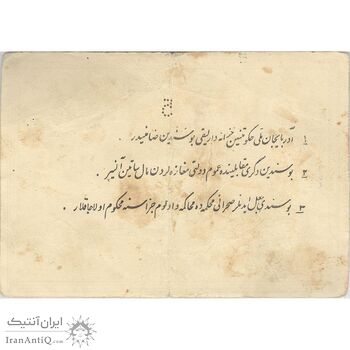 ۱ آذربایجان ملی حکومتنین خزانه دارلیقی بو سندین ضامنیدر.
۲ بو سندین دگری مقابلینده عموم دولتی مغازه لردن مال ساتین آلنیر.
۳ بو سندی جعل ایدنلر صحرائی محکمه ده محاکمه و اعدام جزاسنه محکوم اولاجاقلار.
ایران آنتیک
IranAntiQ.com